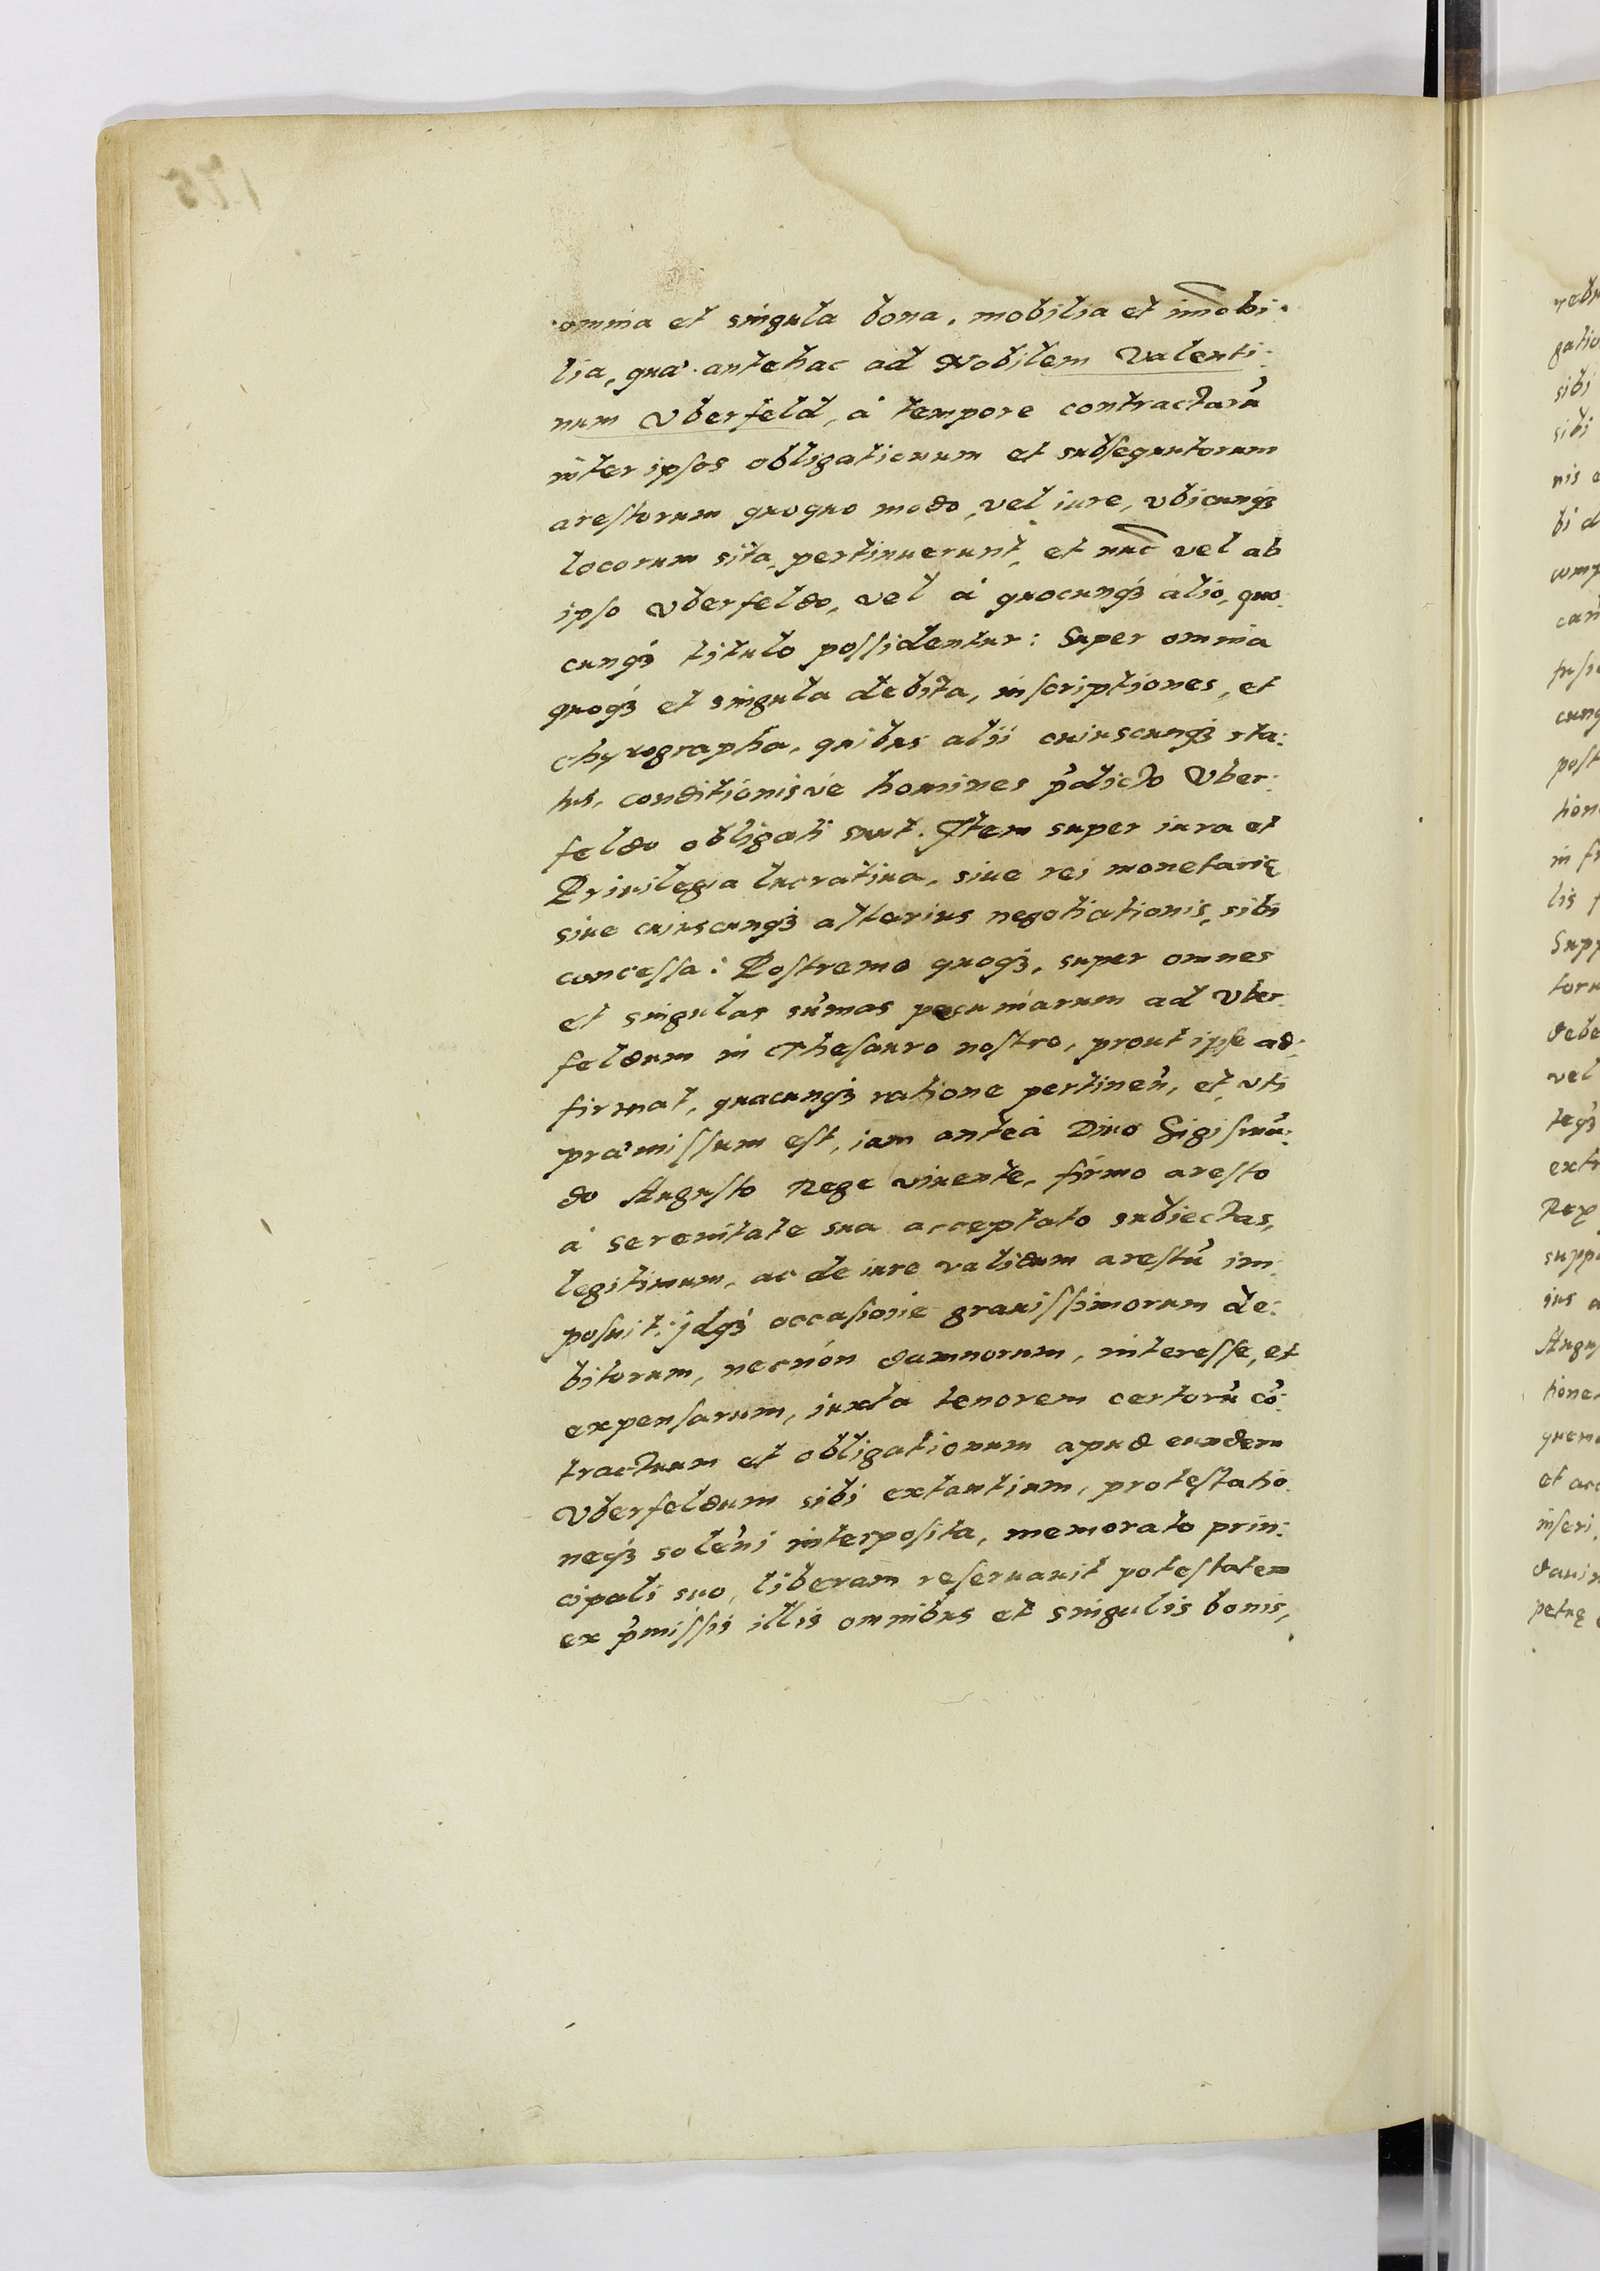 omnia et singula bona, mobilia et im̃obi:
lia, quæ antehac ad Nobilem Valenti:
num Vberfeld, à tempore contractarũ
inter ipsos obligationum et subsequutorum
arestorum quoquo modo, vel iure, vbicunqȝ
locorum sita, pertinuerunt, et nũc vel ab
ipso Vberfeldo, vel à quocunqȝ alio, quo:
cunqȝ titulo possidentur: Super omnia
quoqȝ et singula debita, inscriptiones, et
chyrographa, quibus alii cuiuscunqȝ sta:
tus, conditionisvè homines p̃dicto Vber:
feldo obligati sunt. Item super iura et
Priuilegia lucratiua, siue rei monetarię
siue cuiuscunqȝ alterius negotiationis, sibi
concessa: Postremo quoqȝ, super omnes
et singulas sum̃as pecuniarum ad Vber:
feldum in Thesauro nostro, prout ipse ad:
firmat, quacunqȝ ratione pertineñ, et vti
præmissum est, iam anteà Diuo Sigismũ:
do Augusto Rege viuente, firmo aresto
à serenitate sua acceptato subiectas,
legitimum, ac de iure validum arestũ im:
posuit: jdqȝ occasione grauissimorum de:
bitorum, necnòn damnorum, interesse, et
expensarum, iuxta tenorem certorũ cõ:
tractuum et obligationum apud eundem
Vberfeldum sibi extantium, protestatio:
neqȝ solẽni interposita, memorato prin:
cipali suo, liberam reseruauit potestatem
ex p̃missis illis omnibus et singulis bonis,